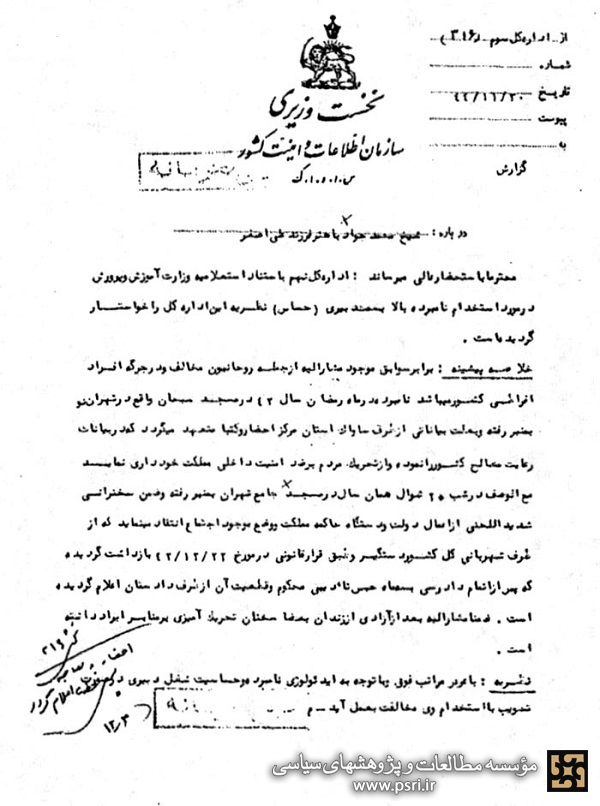 از اداره کل سوم (۳۱۶)
شماره
تاریخ ۴۴/۱۱/۲۰
پیوست
به
گزارش
نخست وزیری
سازمان اطلاعات و امنیت کشور
س.ا.و.ا.ک
درباره : شیخ محمد جواد باهنر فرزند علی اصغر
محترما باستحضار عالی میرساند : اداره کل نهم باستناد استعلامیه وزارت آموزش و پرورش
در مورد استخدام نامبرده بالا بسمت دبیری (حساس) نظریه این اداره کل را خواستار
گردیده است .
خلاصه پیشینه : برابر سوابق موجود مشارالیه از جمله روحانیون مخالف و در جرگه افراد
افراطی کشور میباشد نامبرده در ماه رمضان سال ۴۲ در مسجد سبحان واقع در شهران نو
بمنبر رفته و بعلت بیاناتی از طرف ساواک استان مرکز احضار و کتبا متعهد میگردد که در بیانات
رعایت مصالح کشور را نموده و از تحریک مردم برضد امنیت داخلی مملکت خودداری نماید
مع الوصف در شب ۲۵ شوال همان سال در مسجد جامع شهران بمنبر رفته و ضمن سخنرانی
شدید اللحنی از اعمال دولت و دستگاه حاکمه مملکت و وضع موجود اجتماع انتقاد مینماید که از
طرف شهربانی کل کشور دستگیر و طبق قرار قانونی در مورخ ۴۲/۱۲/۲۲ بازداشت گردیده
که پس از انجام دادرسی بسه ماه حبس تادیبی محکوم و قطعیت آن از طرف دادستان اعلام گردیده
است . ضمنا مشارالیه بعد از آزادی از زندان بعضا سخنان تحریک آمیزی بر منابر ایراد داشته
است .
نظریه : با عرض مراتب فوق و با توجه به ایدئولوژی نامبرده و حساسیت شغل دبیری در صورت
تصویب با استخدام وی مخالفت بعمل آید - م
مؤسسه مطالعات و پژوهشهای سیاسی
www.psri.ir